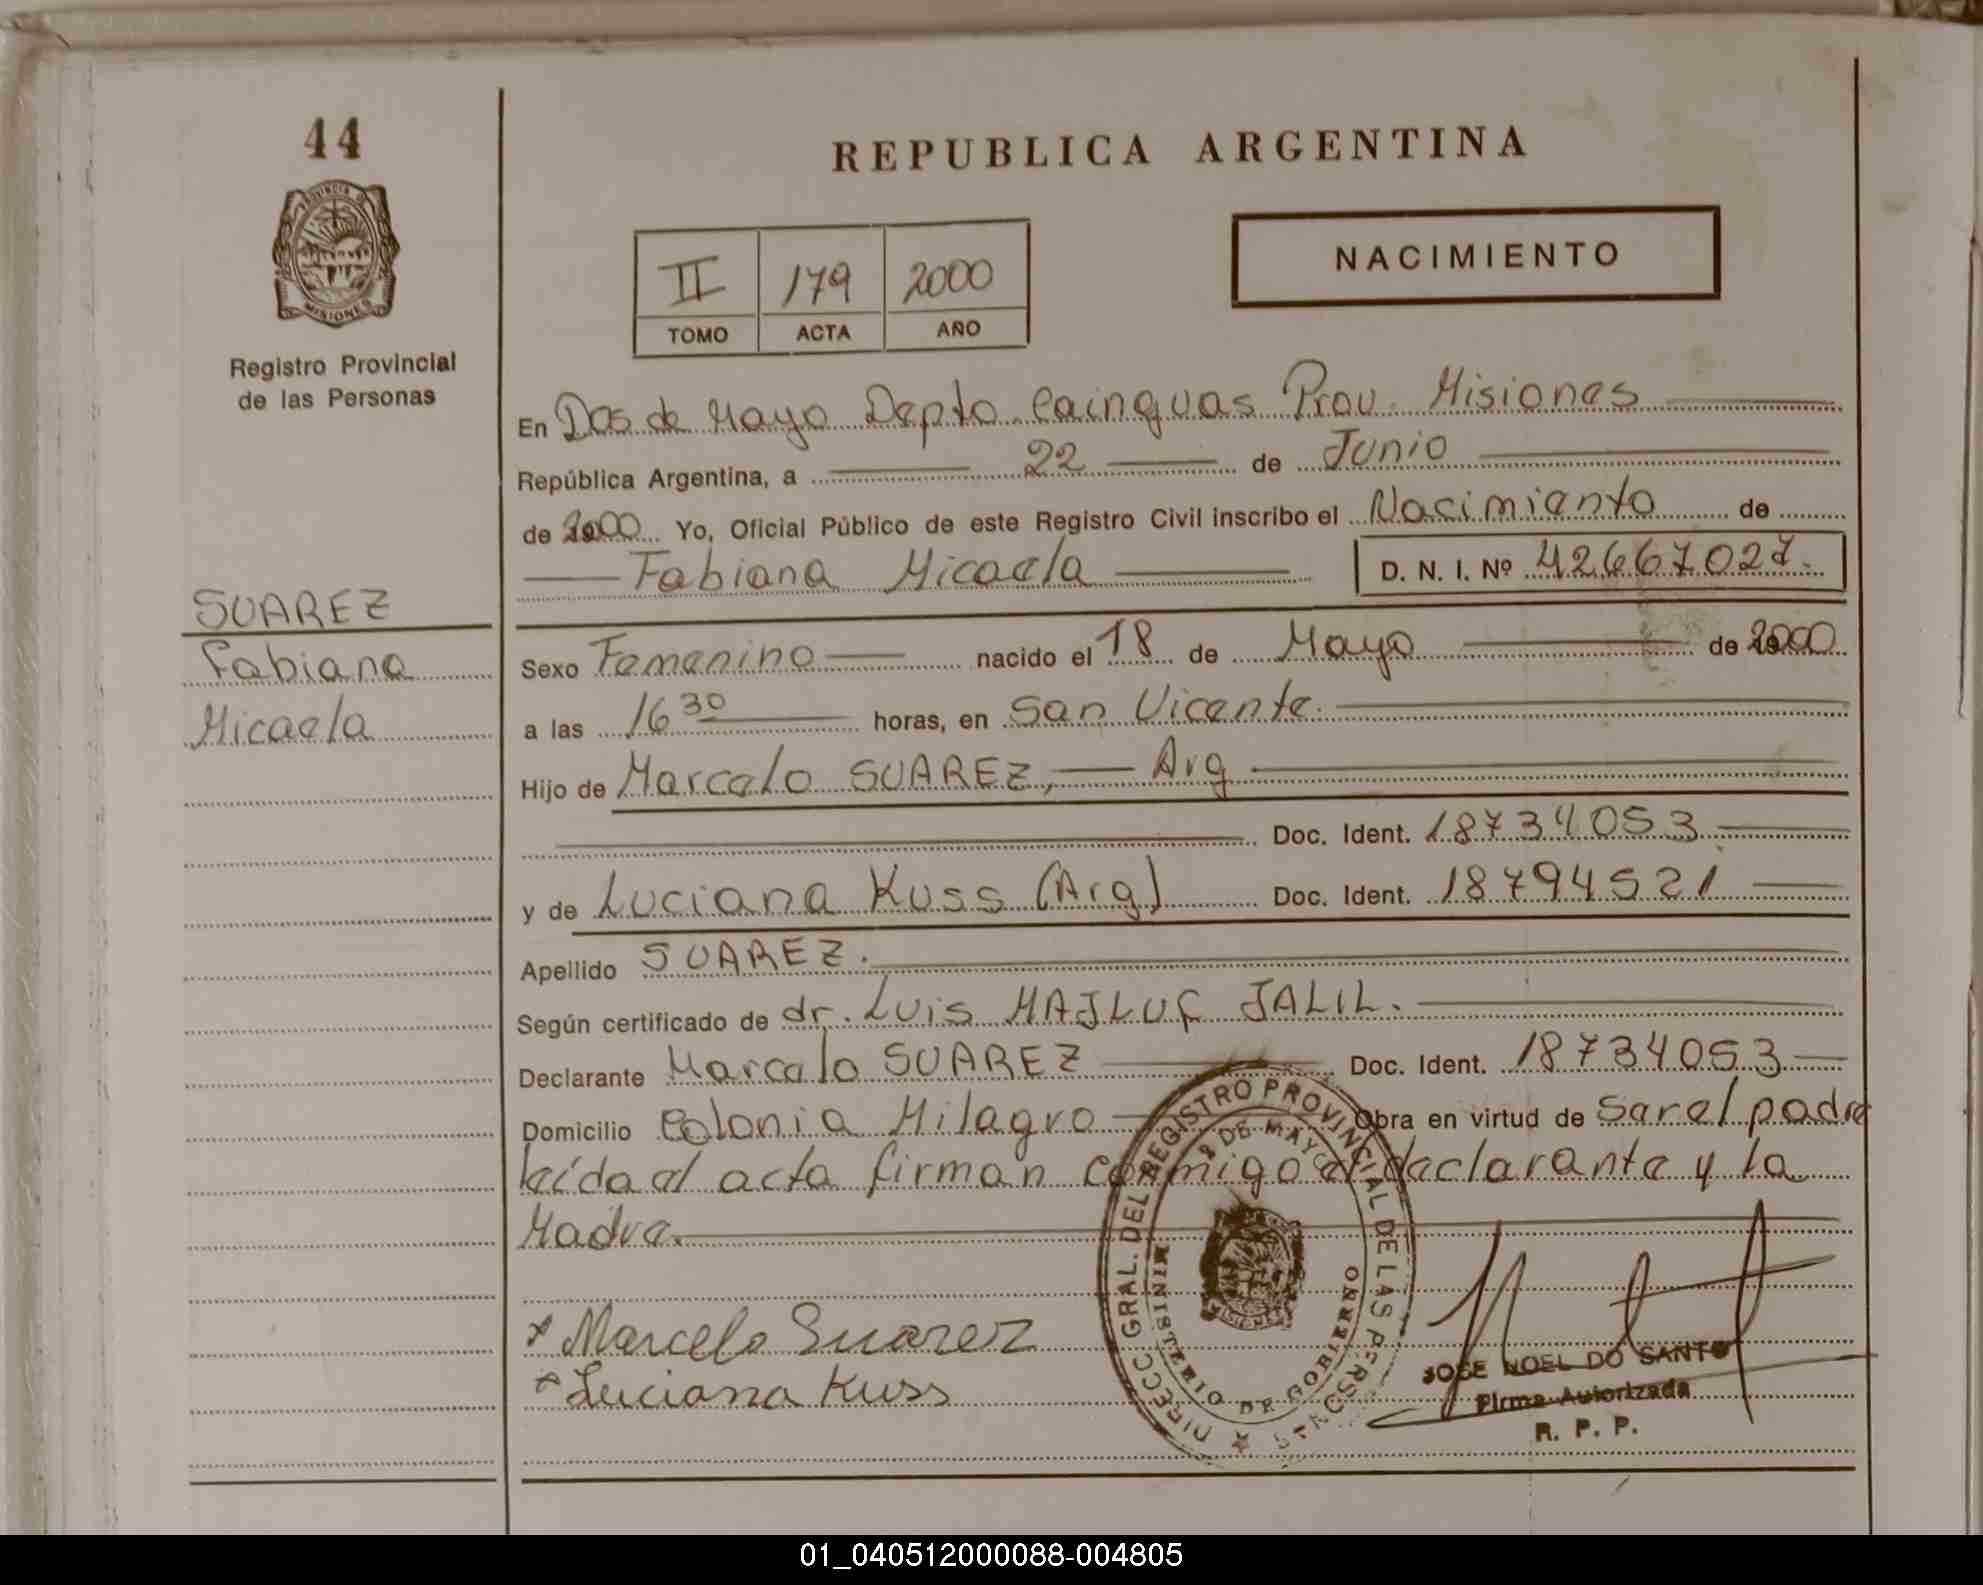 44
REPUBLICA ARGENTINA
PROVINCIA D
MISIONES
Registro Provincial
de las Personas
II 179 2000
TOMO ACTA AÑO
NACIMIENTO
En Dos de Mayo Depto. Cainguas Prov. Misiones
República Argentina, a 22 de Junio
de 2000 Yo, Oficial Público de este Registro Civil inscribo el Nacimiento de
Fabiana Micaela D. N. I. Nº 42667027.
SUAREZ
Fabiana
Micaela
Sexo Femenino nacido el 18 de Mayo de 2000
a las 16 30 horas, en San Vicente.
Hijo de Marcelo SUAREZ, Arg
Doc. Ident. 18734053
y de Luciana Kuss (Arg) Doc. Ident. 18794521
Apellido SUAREZ.
Según certificado de dr. Luis MAJLUF JALIL.
Declarante Marcelo SUAREZ Doc. Ident. 18734053
Domicilio Colonia Milagro Obra en virtud de Ser el padre
leída el acta firman conmigo el declarante y la
Madre.
DIRECC. GRAL. DEL REGISTRO PROVINCIAL DE LAS PERSONAS
2 DE MAYO
MINISTERIO DE GOBIERNO
x Marcelo Suarez
x Luciana Kuss
JOSE NOEL DO SANTO
Firma Autorizada
R. P. P.
01_040512000088-004805